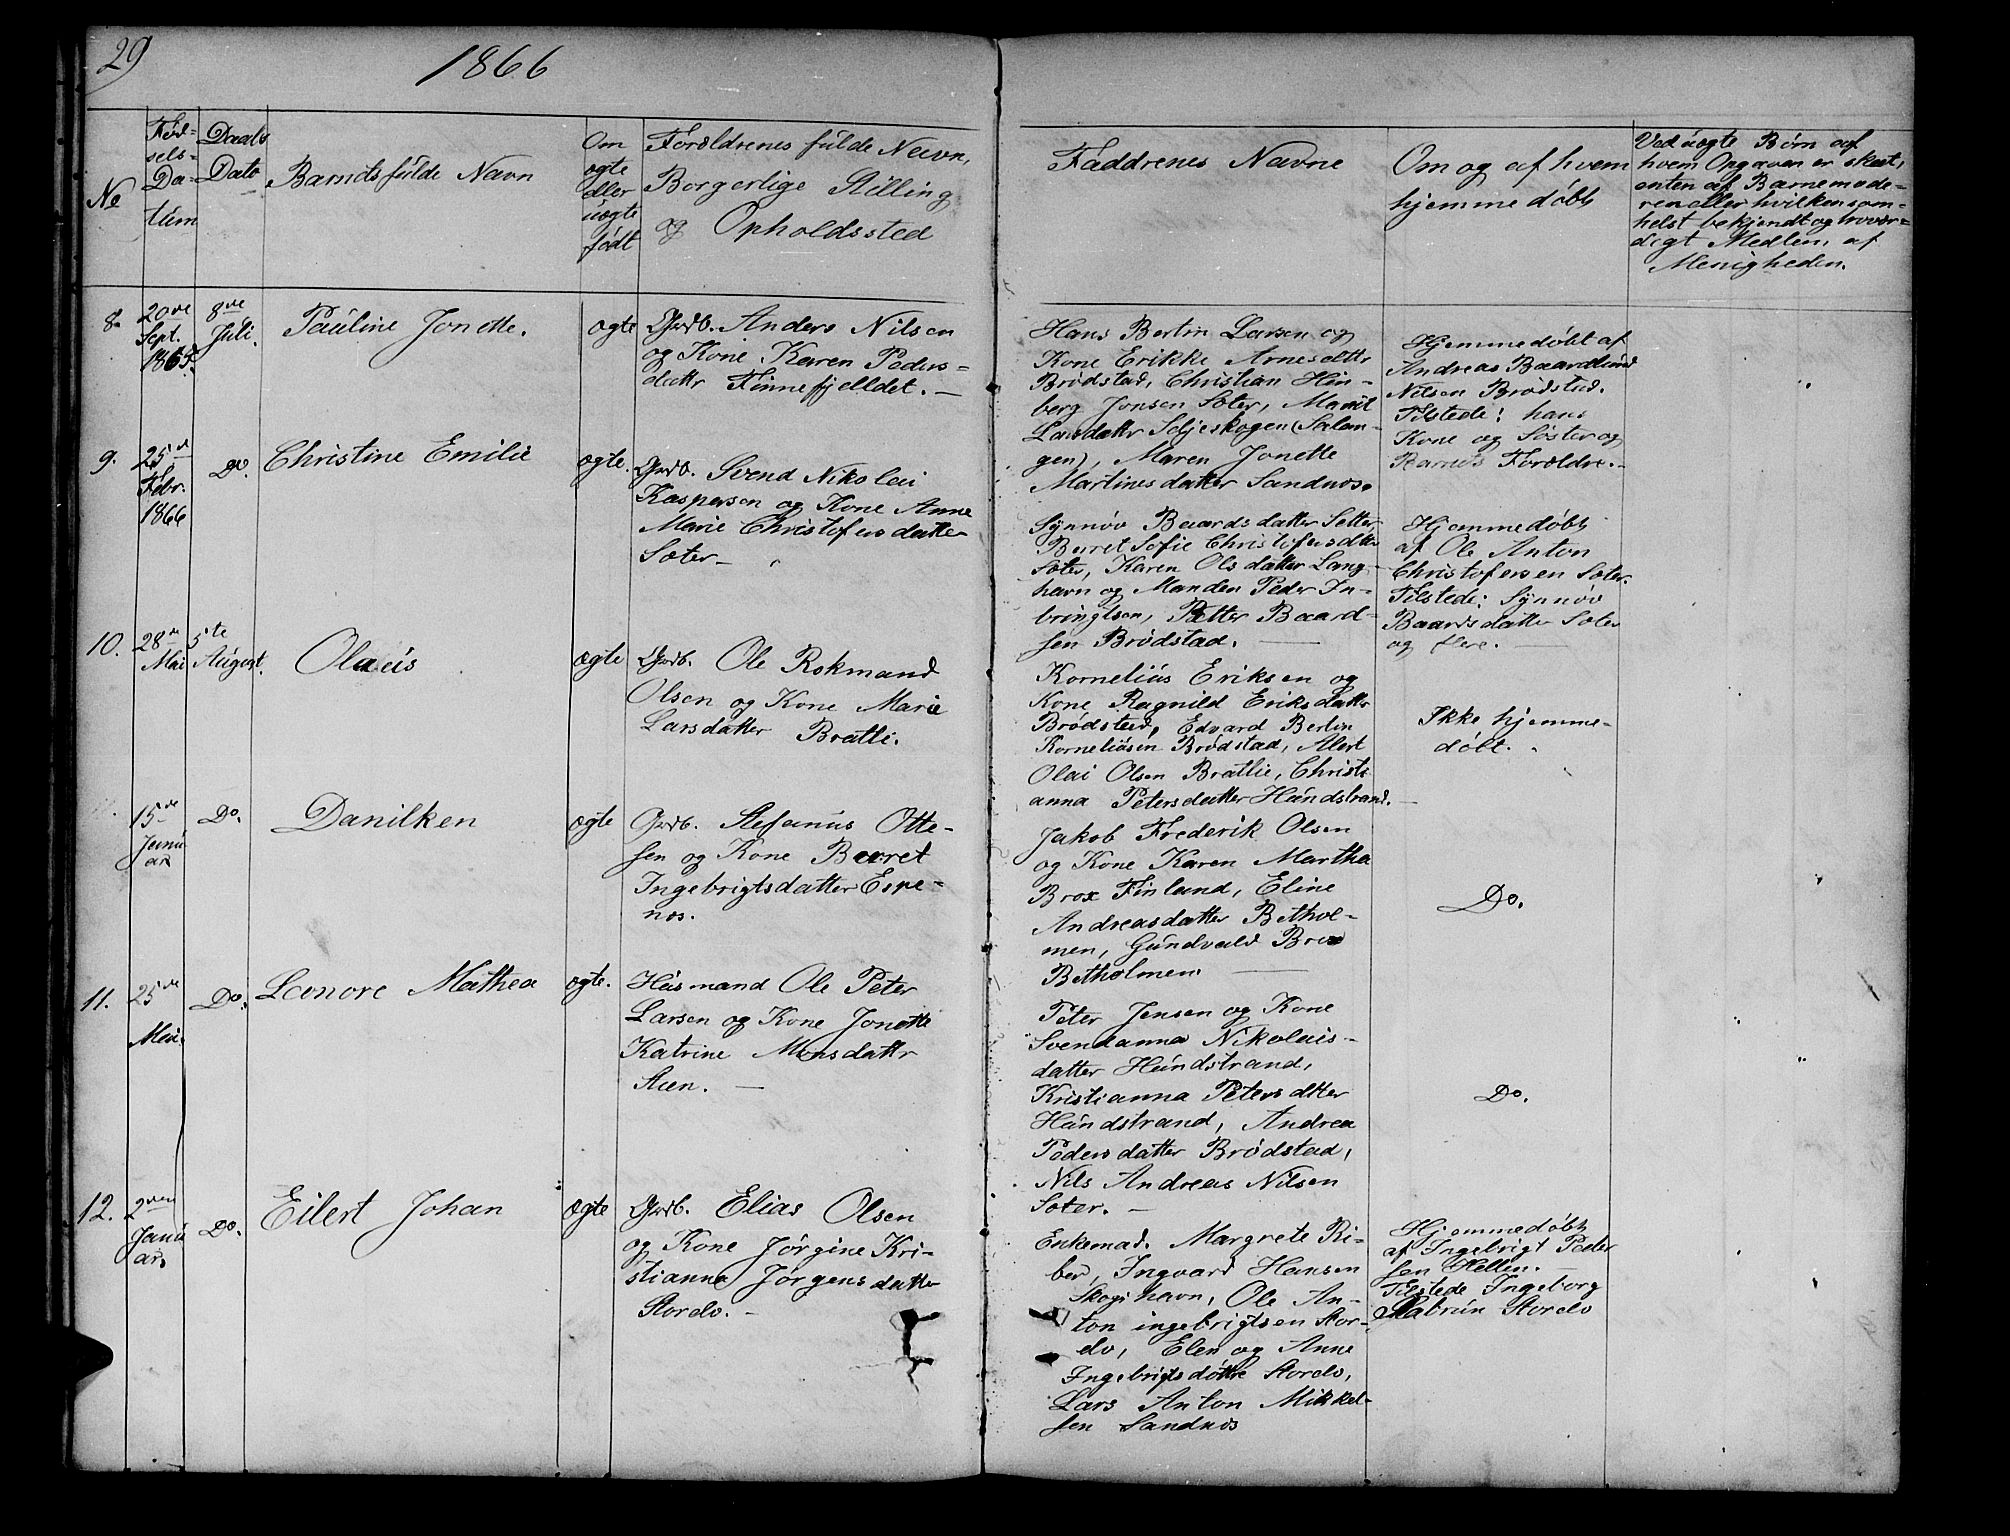 29
1866
No
Fød-
sels-
Da-
tum
Daabs
Dato
Barnets fulde Navn
Om
ægte
eller
uægte
født
Forældrenes fulde Navn,
Borgerlige Stilling
og Opholdssted
Faddrenes Navne
Om og af hvem
hjemmedøbt
Ved uægte Børn af
hvem Opgaven er skeet,
enten af Barnemode-
ren eller hvilkensom-
helst bekjendt og trovær-
digt Medlem af
Menigheden.
8.
20de
Sept.
1865.
8de
Juli.
Pauline Jonette.
ægte
Grdb. Anders Nilsen
og Kone Karen Peders-
dattr Finnefjelldet. —
Hans Bertin Larsen og
Kone Erikke Arnesdattr
Brødstad, Christian Hin-
berg Jonsen Sæter, Marit
Larsdattr Seljeskogen (Salan-
gen), Maren Jonette
Martinesdatter Sandnæs.
Hjemmedøbt af
Andreas Baardlund
Nilsen Brødstad.
Tilstede: hans
Kone og Søster og
Barnets Forældre.
9.
25de
Febr.
1866
Do.
Christine Emilie
ægte.
Grdb. Svend Nikolai
Kaspersen og Kone Anne
Marie Christofersdatter
Sæter —
Synnøv Baardsdatter Setter,
Beret Sofie Christofersdtter
Sæter, Karen Olsdatter Lang-
havn og Manden Peder In-
bringtsen, Petter Baard-
sen Brødstad. —
Hjemmedøbt
af Ole Anton
Christofersen Sæter.
Tilstede: Synnøv
Baardsdatter Sæter
og flere. —
10.
28de
Mai
5te
August.
Olaus
ægte
Grdb. Ole Rokmand
Olsen og Kone Marie
Larsdatter Bratli.
Kornelius Eriksen og
Kone Ragnild Eriksdattr
Brødsted, Edvard Bertin
Korneliusen Brødstad, Alert
Olai Olsen Bratlie, Christi
anna Petersdatter Hundstrand. —
Ikke hjemme-
døbt.
15de
Janu
ar
Do.
Danilken
ægte
Grdb. Stefanus Otte-
sen og Kone Beret
Ingebrigtsdatter Espe-
næs.
Jakob Frederik Olsen
og Kone Karen Martha
Brox Finland, Eline
Andreasdatter Bethol-
men, Gundvald Brox
Betholmen —
Do.
11.
25de
Mai.
Do.
Leonore Mathea
ægte.
Husmand Ole Peter
Larsen og Kone Jonette
Katrine Monsdattr
Steen. —
Peter Jensen og Kone
Svendanna Nikolais-
datter Hundstrand,
Kristianna Petersdtter
Hundstrand, Andrea
Pedersdatter Brødstad,
Nils Andreas Nilsen
Sæter. —
Do.
12.
2den
Janu
ar
Do.
Eilert Johan
ægte
Grdb. Elias Olsen
og Kone Jørgine Kri-
stianna Jørgensdatter
Storelv. —
Enkemad. Margrete Ri-
ber, Ingvard Hansen
Skogshavn, Ole An-
ton ingebrigtsen Stor-
elv, Elen og Anne
Ingebrigtsdøttre Storelv,
Lars Anton Mikkel-
sen Sandnæs
Hjemmedøbt
af Ingebrigt Peder
sen Hellen. —
Tilstede Ingeborg
Katrin Storelv